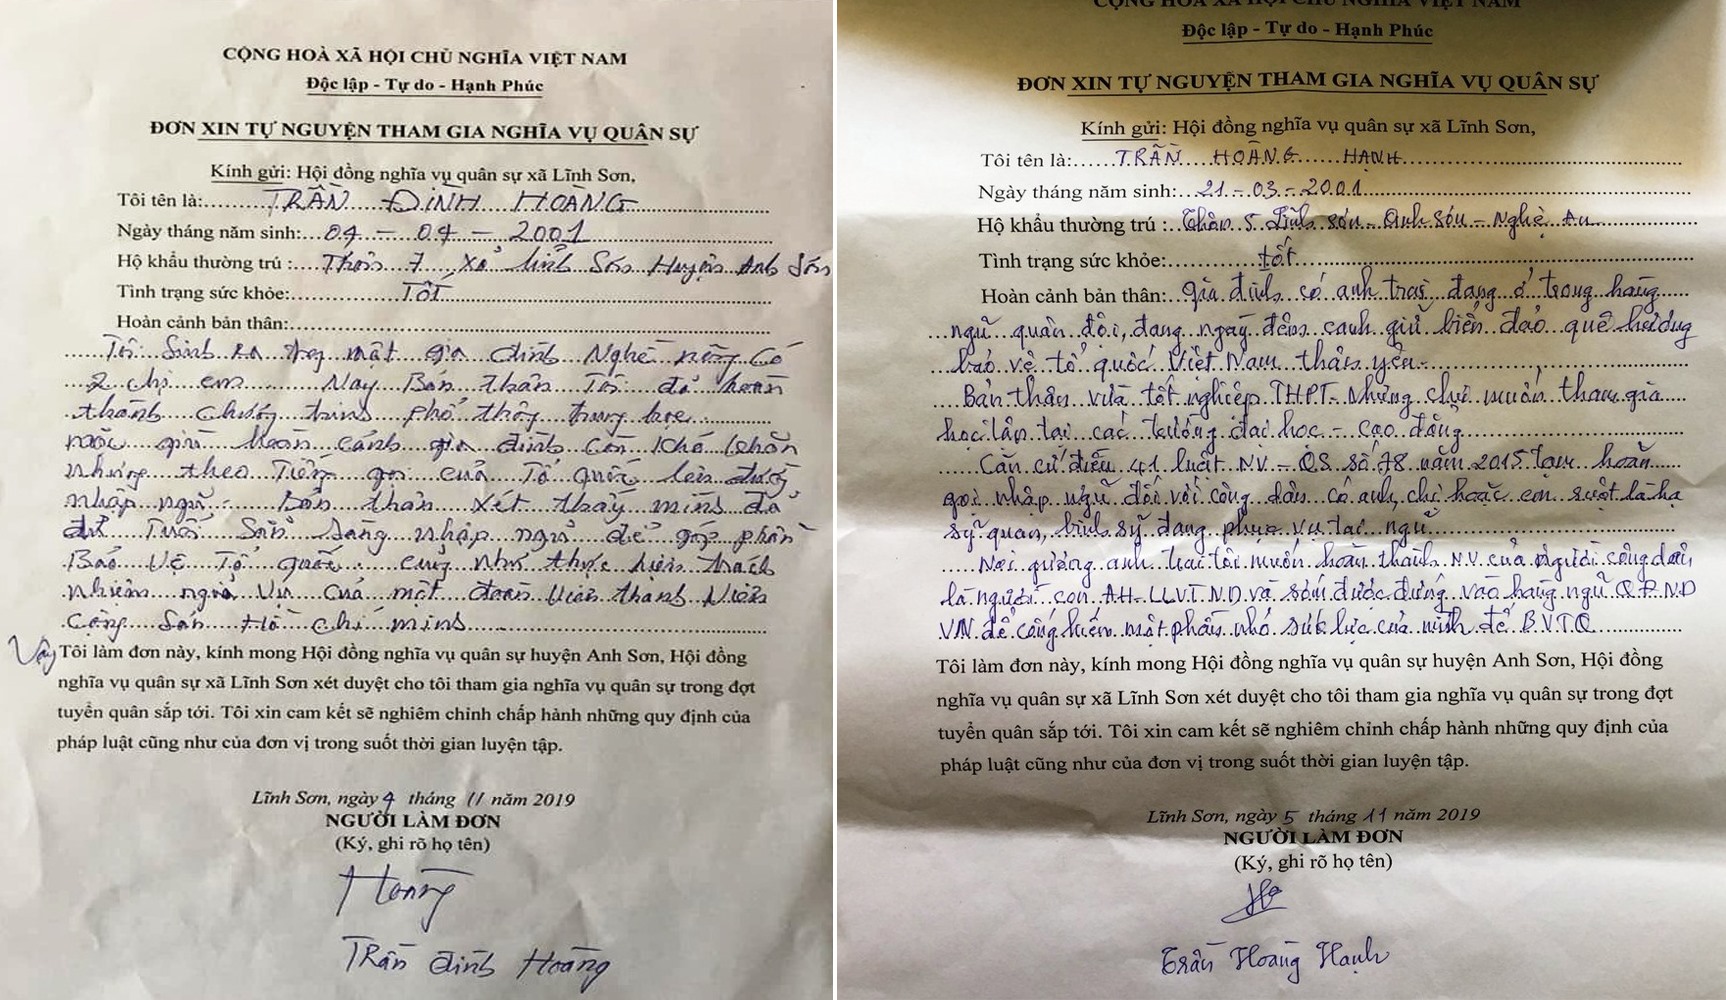 CỘNG HOÀ XÃ HỘI CHỦ NGHĨA VIỆT NAM
Độc lập - Tự do - Hạnh Phúc
ĐƠN XIN TỰ NGUYỆN THAM GIA NGHĨA VỤ QUÂN SỰ
Kính gửi: Hội đồng nghĩa vụ quân sự xã Lĩnh Sơn,
Tôi tên là: TRẦN ĐÌNH HOÀNG
Ngày tháng năm sinh: 04 - 04 - 2001
Hộ khẩu thường trú : Thôn 7 xã Lĩnh Sơn Huyện Anh Sơn
Tình trạng sức khỏe: TỐT
Hoàn cảnh bản thân:
Tôi Sinh ra trong một gia đình Nghề nông Có
2 chị em Nay Bản thân Tôi đã hoàn
thành chương trình phổ thông trung học
mặc dù hoàn cảnh gia đình còn khó khăn
nhưng theo Tiếng gọi của Tổ quốc lên đường
nhập ngũ. Bản thân xét thấy mình đã
đủ Tuổi Sẵn Sàng nhập ngũ để góp phần
Bảo Vệ Tổ quốc cũng như thực hiện trách
nhiệm nghĩa Vụ của một đoàn Viên thanh Niên
Cộng Sản Hồ Chí minh
Vậy Tôi làm đơn này, kính mong Hội đồng nghĩa vụ quân sự huyện Anh Sơn, Hội đồng
nghĩa vụ quân sự xã Lĩnh Sơn xét duyệt cho tôi tham gia nghĩa vụ quân sự trong đợt
tuyển quân sắp tới. Tôi xin cam kết sẽ nghiêm chỉnh chấp hành những quy định của
pháp luật cũng như của đơn vị trong suốt thời gian luyện tập.
Lĩnh Sơn, ngày 4 tháng 11 năm 2019
NGƯỜI LÀM ĐƠN
(Ký, ghi rõ họ tên)
Hoàng
TRần đình Hoàng
CỘNG HOÀ XÃ HỘI CHỦ NGHĨA VIỆT NAM
Độc lập - Tự do - Hạnh Phúc
ĐƠN XIN TỰ NGUYỆN THAM GIA NGHĨA VỤ QUÂN SỰ
Kính gửi: Hội đồng nghĩa vụ quân sự xã Lĩnh Sơn,
Tôi tên là: TRẦN HOÀNG HẠNH
Ngày tháng năm sinh: 21 - 03 - 2001
Hộ khẩu thường trú : Thôn 5 Lĩnh Sơn - Anh Sơn - Nghệ An
Tình trạng sức khỏe: tốt
Hoàn cảnh bản thân: Gia đình có anh trai đang ở trong hàng
ngũ quân đội, đang ngày đêm canh giữ biển đảo quê hương
bảo vệ tổ quốc Việt Nam thân yêu
Bản thân vừa tốt nghiệp THPT. Nhưng chưa muốn tham gia
học lên tại các trường đại học - cao đẳng
Căn cứ điều 41 luật NV - QS số 78 năm 2015 tạm hoãn
gọi nhập ngũ đối với công dân có anh, chị hoặc em ruột là hạ
sỹ quan, binh sỹ đang phục vụ tại ngũ
Noi gương anh trai tôi muốn hoàn thành N.V của người công dân
là người con AH LLVTND và sớm được đứng vào hàng ngũ QĐND
VN để cống hiến một phần nhỏ sức lực của mình để BVTQ
Tôi làm đơn này, kính mong Hội đồng nghĩa vụ quân sự huyện Anh Sơn, Hội đồng
nghĩa vụ quân sự xã Lĩnh Sơn xét duyệt cho tôi tham gia nghĩa vụ quân sự trong đợt
tuyển quân sắp tới. Tôi xin cam kết sẽ nghiêm chỉnh chấp hành những quy định của
pháp luật cũng như của đơn vị trong suốt thời gian luyện tập.
Lĩnh Sơn, ngày 5 tháng 11 năm 2019
NGƯỜI LÀM ĐƠN
(Ký, ghi rõ họ tên)
Trần Hoàng Hạnh